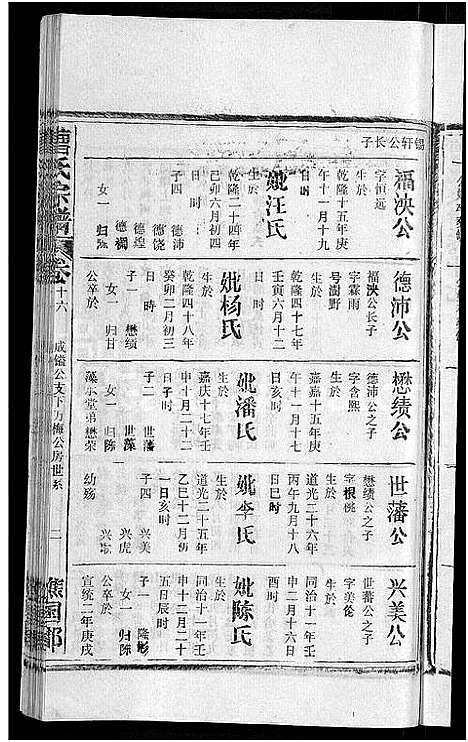 锡轩公长子
福泱公
字恒远
生於
乾隆十五年庚
午十一月十九
日时
妣汪氏
生於
乾隆二十四年
己卯六月初四
子四 德沛
德饶
德煌
德襡
女一 归陈
德沛公
福泱公长子
字霖雨
号润野
生於
乾隆四十七年
壬寅六月十二
日 时
妣杨氏
生於
乾隆四十八年
癸卯二月初三
日 时
子一 懋绩
女一 归甘
公卒於
懋绩公
德沛公之子
字含熙
生於
嘉嘉十五年庚
午十一月十七
日亥时
妣潘氏
生於
嘉庆十七年壬
申十月二十二
日子时
子二 世藩
世藻
女一 归陈
藻承堂弟懋荣
世藩公
懋绩公之子
字根桃
生於
道光二十六年
丙午九月十八
日巳时
妣李氏
生於
道光二十五年
乙巳十二月初
一日亥时
子四 兴美
兴虎
兴歌
幼殇
兴美公
世蕃公之子
字美伦
生於
同治十一年壬
申二月十六日
酉时
妣陈氏
生於
同治十一年壬
申十二月二十
五日辰时
子一 隆彬
女一 归陈
公卒於
宣统二年庚戌
曹氏宗谱
卷六十六 咸镒公支下万梅公房世系 二
谯国郡